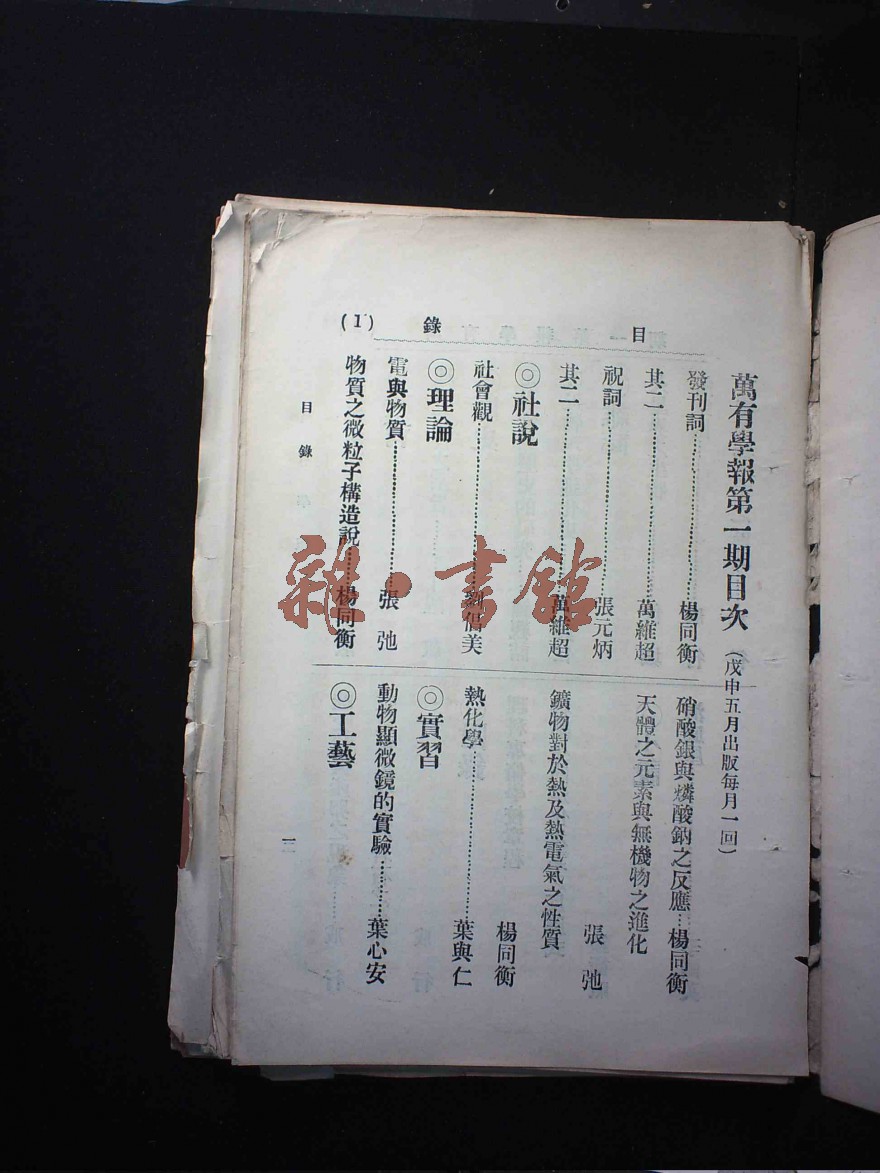 目錄 (1)
萬有學報第一期目次 (戊申五月出版每月一回)
發刊詞…………楊同衡
其二…………萬維超
祝詞…………張元炳
其二…………萬維超
◎社說
社會觀…………劉倡美
◎理論
電與物質…………張弛
物質之微粒子構造說……楊同衡
硝酸銀與燐酸鈉之反應…楊同衡
天體之元素與無機物之進化
張弛
鑛物對於熱及熱電氣之性質
楊同衡
熱化學…………葉與仁
◎實習
動物顯微鏡的實驗……葉心安
◎工藝
目錄
雜·書館